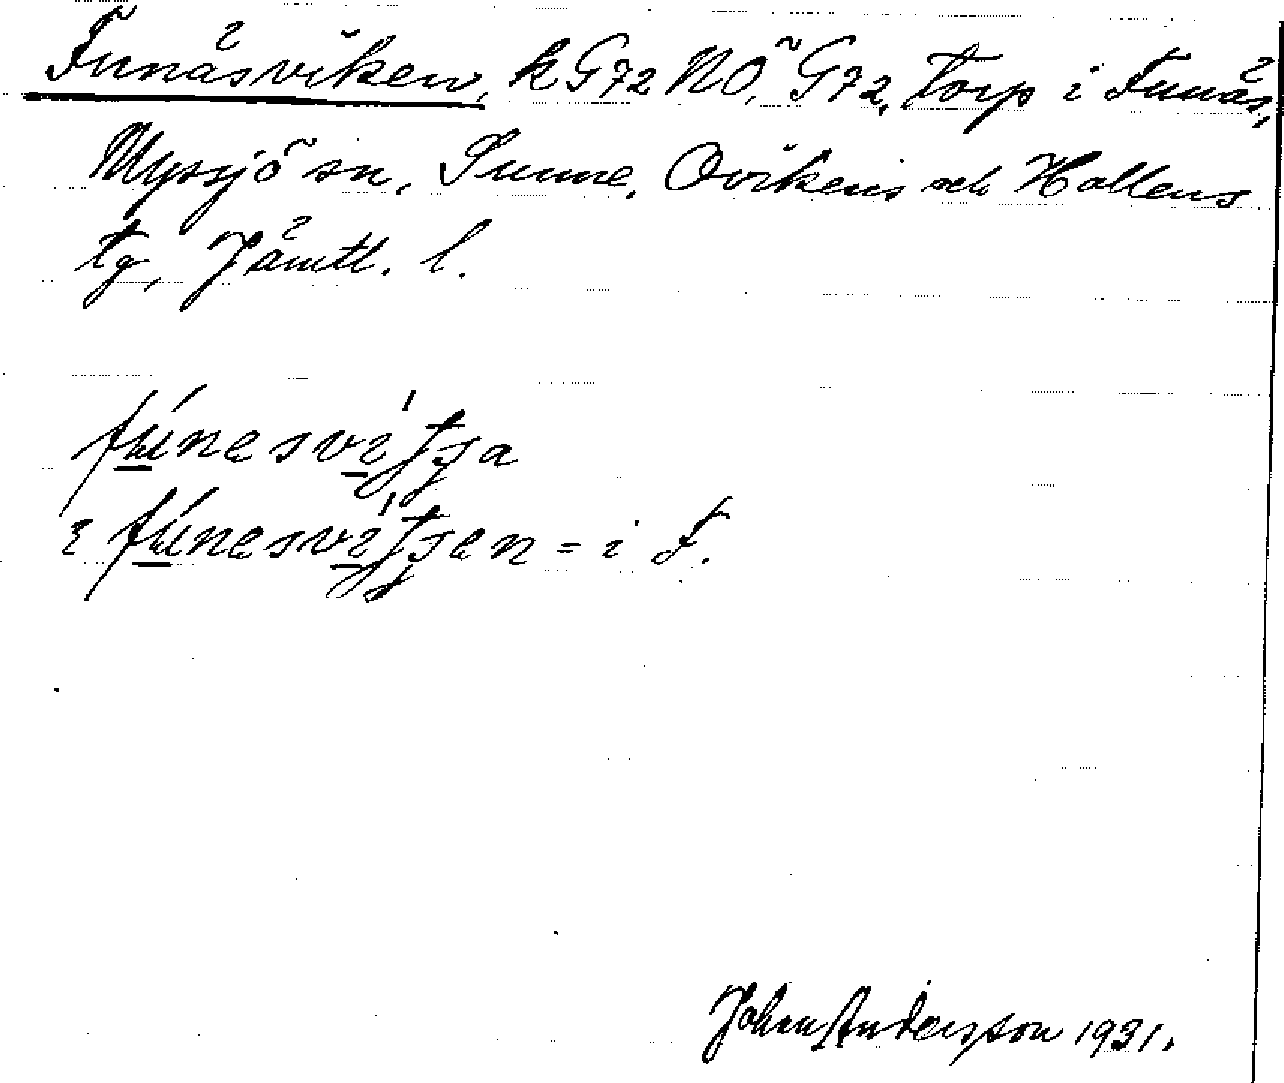 Funäsviken, k G72 NO, Ö G72, torp i Funäs,
Myssjö sn, Sunne, Ovikens och Hallens
tg, Jämtl. l.
fúnesvítʃa
i fúnesvítʃen = i F.
Johan Andersson 1931.